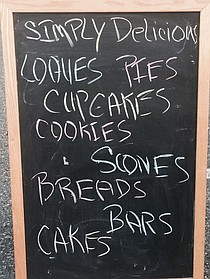 SIMPLY Delicious
LOAVES PIES
CUPCAKES
COOKIES
SCONES
BREADS
BARS
CAKES